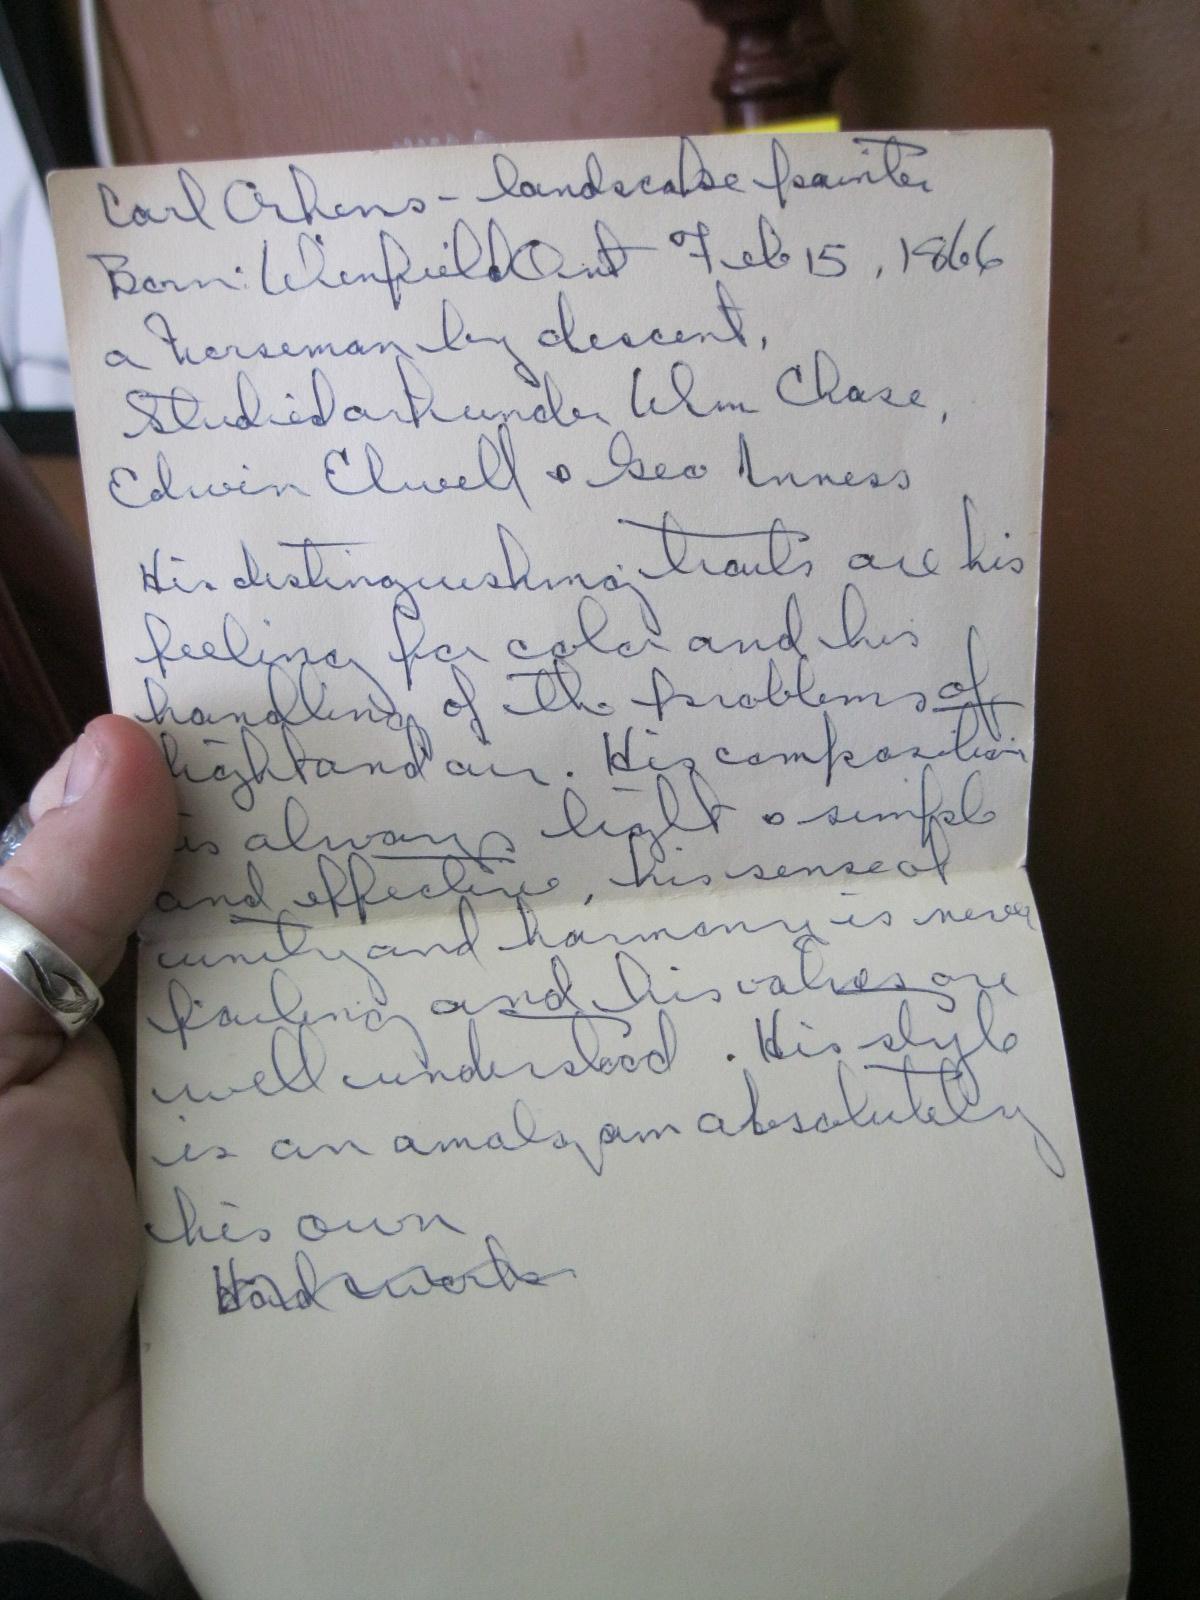 Carl Ahrens - landscape painter
Born: Winfield Ont Feb 15, 1866
a horseman by descent,
Studied art under Wm Chase,
Edwin Elwell & Geo Inness
His distinguishing traits are his
feeling for color and his
handling of the problems of
light and air. His composition
is always light & simple
and effective, his sense of
unity and harmony is never
failing and his values are
well understood. His style
is an amalgam absolutely
his own